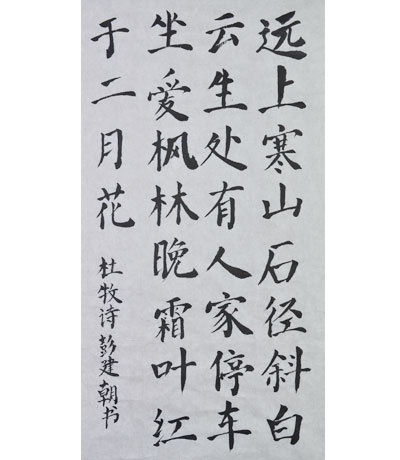 远上寒山石径斜白
云生处有人家停车
坐爱枫林晚霜叶红
于二月花
杜牧诗彭建朝书